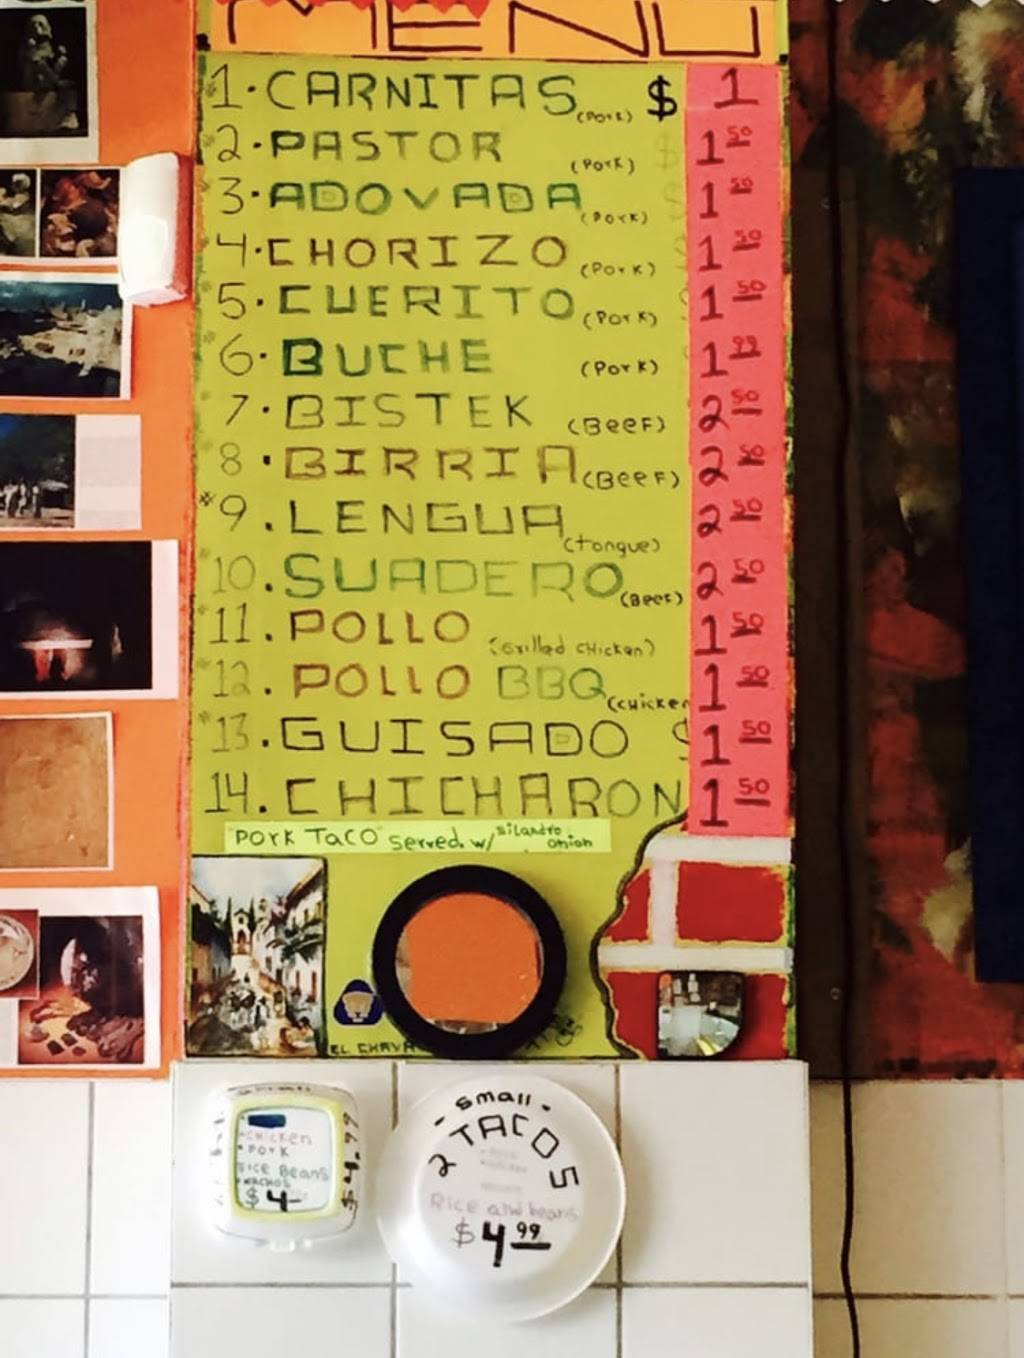 MENU
1. CARNITAS (Pork) $ 1
2. PASTOR (Pork) 1 50
3. ADOVADA (Pork) 1 50
4. CHORIZO (Pork) 1 50
5. CUERITO (Pork) 1 50
6. BUCHE (Pork) 1 99
7. BISTEK (Beef) 2 50
8. BIRRIA (Beef) 2 50
*9. LENGUA (tongue) 2 50
10. SUADERO (Beef) 2 50
11. POLLO (Grilled CHicken) 1 50
12. POLLO BBQ (CHicken 1 50
13. GUISADO $ 1 50
14. CHICHARON 1 50
"PORK TACO" Served. w/ silandro onion
EL CHAVA
CHICKEN
PORK
RICE BEANS
NACHOS
$4
$4.99
- small -
2 TACOS
Rice and beans
$4 99